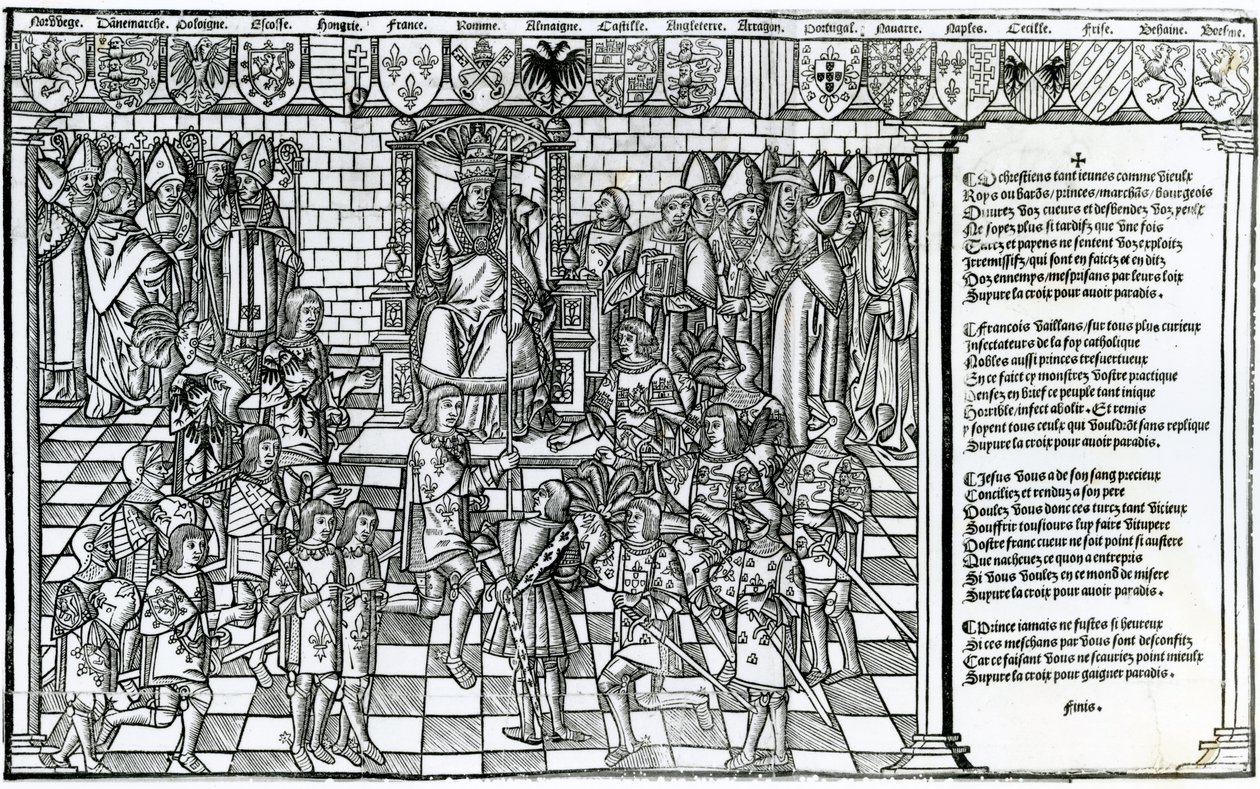 Norvvege. Dānemarche. Poloigne. Escosse. Hongrie. France. Romme. Almaigne. Castille. Angleterre. Arragon. Portugal. Nauarre. Naples. Cecille. Frise. Behaine. Boesme.
chrestiens tant ieunes comme vieulx
Roys ou barōs/princes/marchās/bourgeois
Ouurez voz cueurs et desbendez voz yeulx
Ne soyez plus si tardifz que vne fois
Turcz et payens ne sentent voz exploitz
Irremissifz/qui sont en faictz et en ditz
Voz ennemys/mesprisans par leurs loix
Suyure la croix pour auoir paradis.
Francois vaillans/sur tous plus curieux
Insectateurs de la foy catholique
Nobles aussi princes tresuertueux
En ce faict cy monstrez vostre practique
Pensez en brief ce peuple tant inique
Horrible/infect abolir. Et remis
y soyent tous ceulx qui vouldrōt sans replique
Suyure la croix pour auoir paradis.
Jesus vous a de son sang precieux
Conciliez et renduz a son pere
Voulez vous donc ces turcz tant vicieux
Souffrir tousiours luy faire vitupere
Vostre franc cueur ne soit point si austere
Que nacheuez ce quon a entrepris
Si vous voulez en ce mond de misere
Suyure la croix pour auoir paradis.
Prince iamais ne fustes si heureux
Si ces meschans par vous sont desconfitz
Car ce faisant vous ne scauriez point mieulx
Suyure la croix pour gaigner paradis.
Finis.